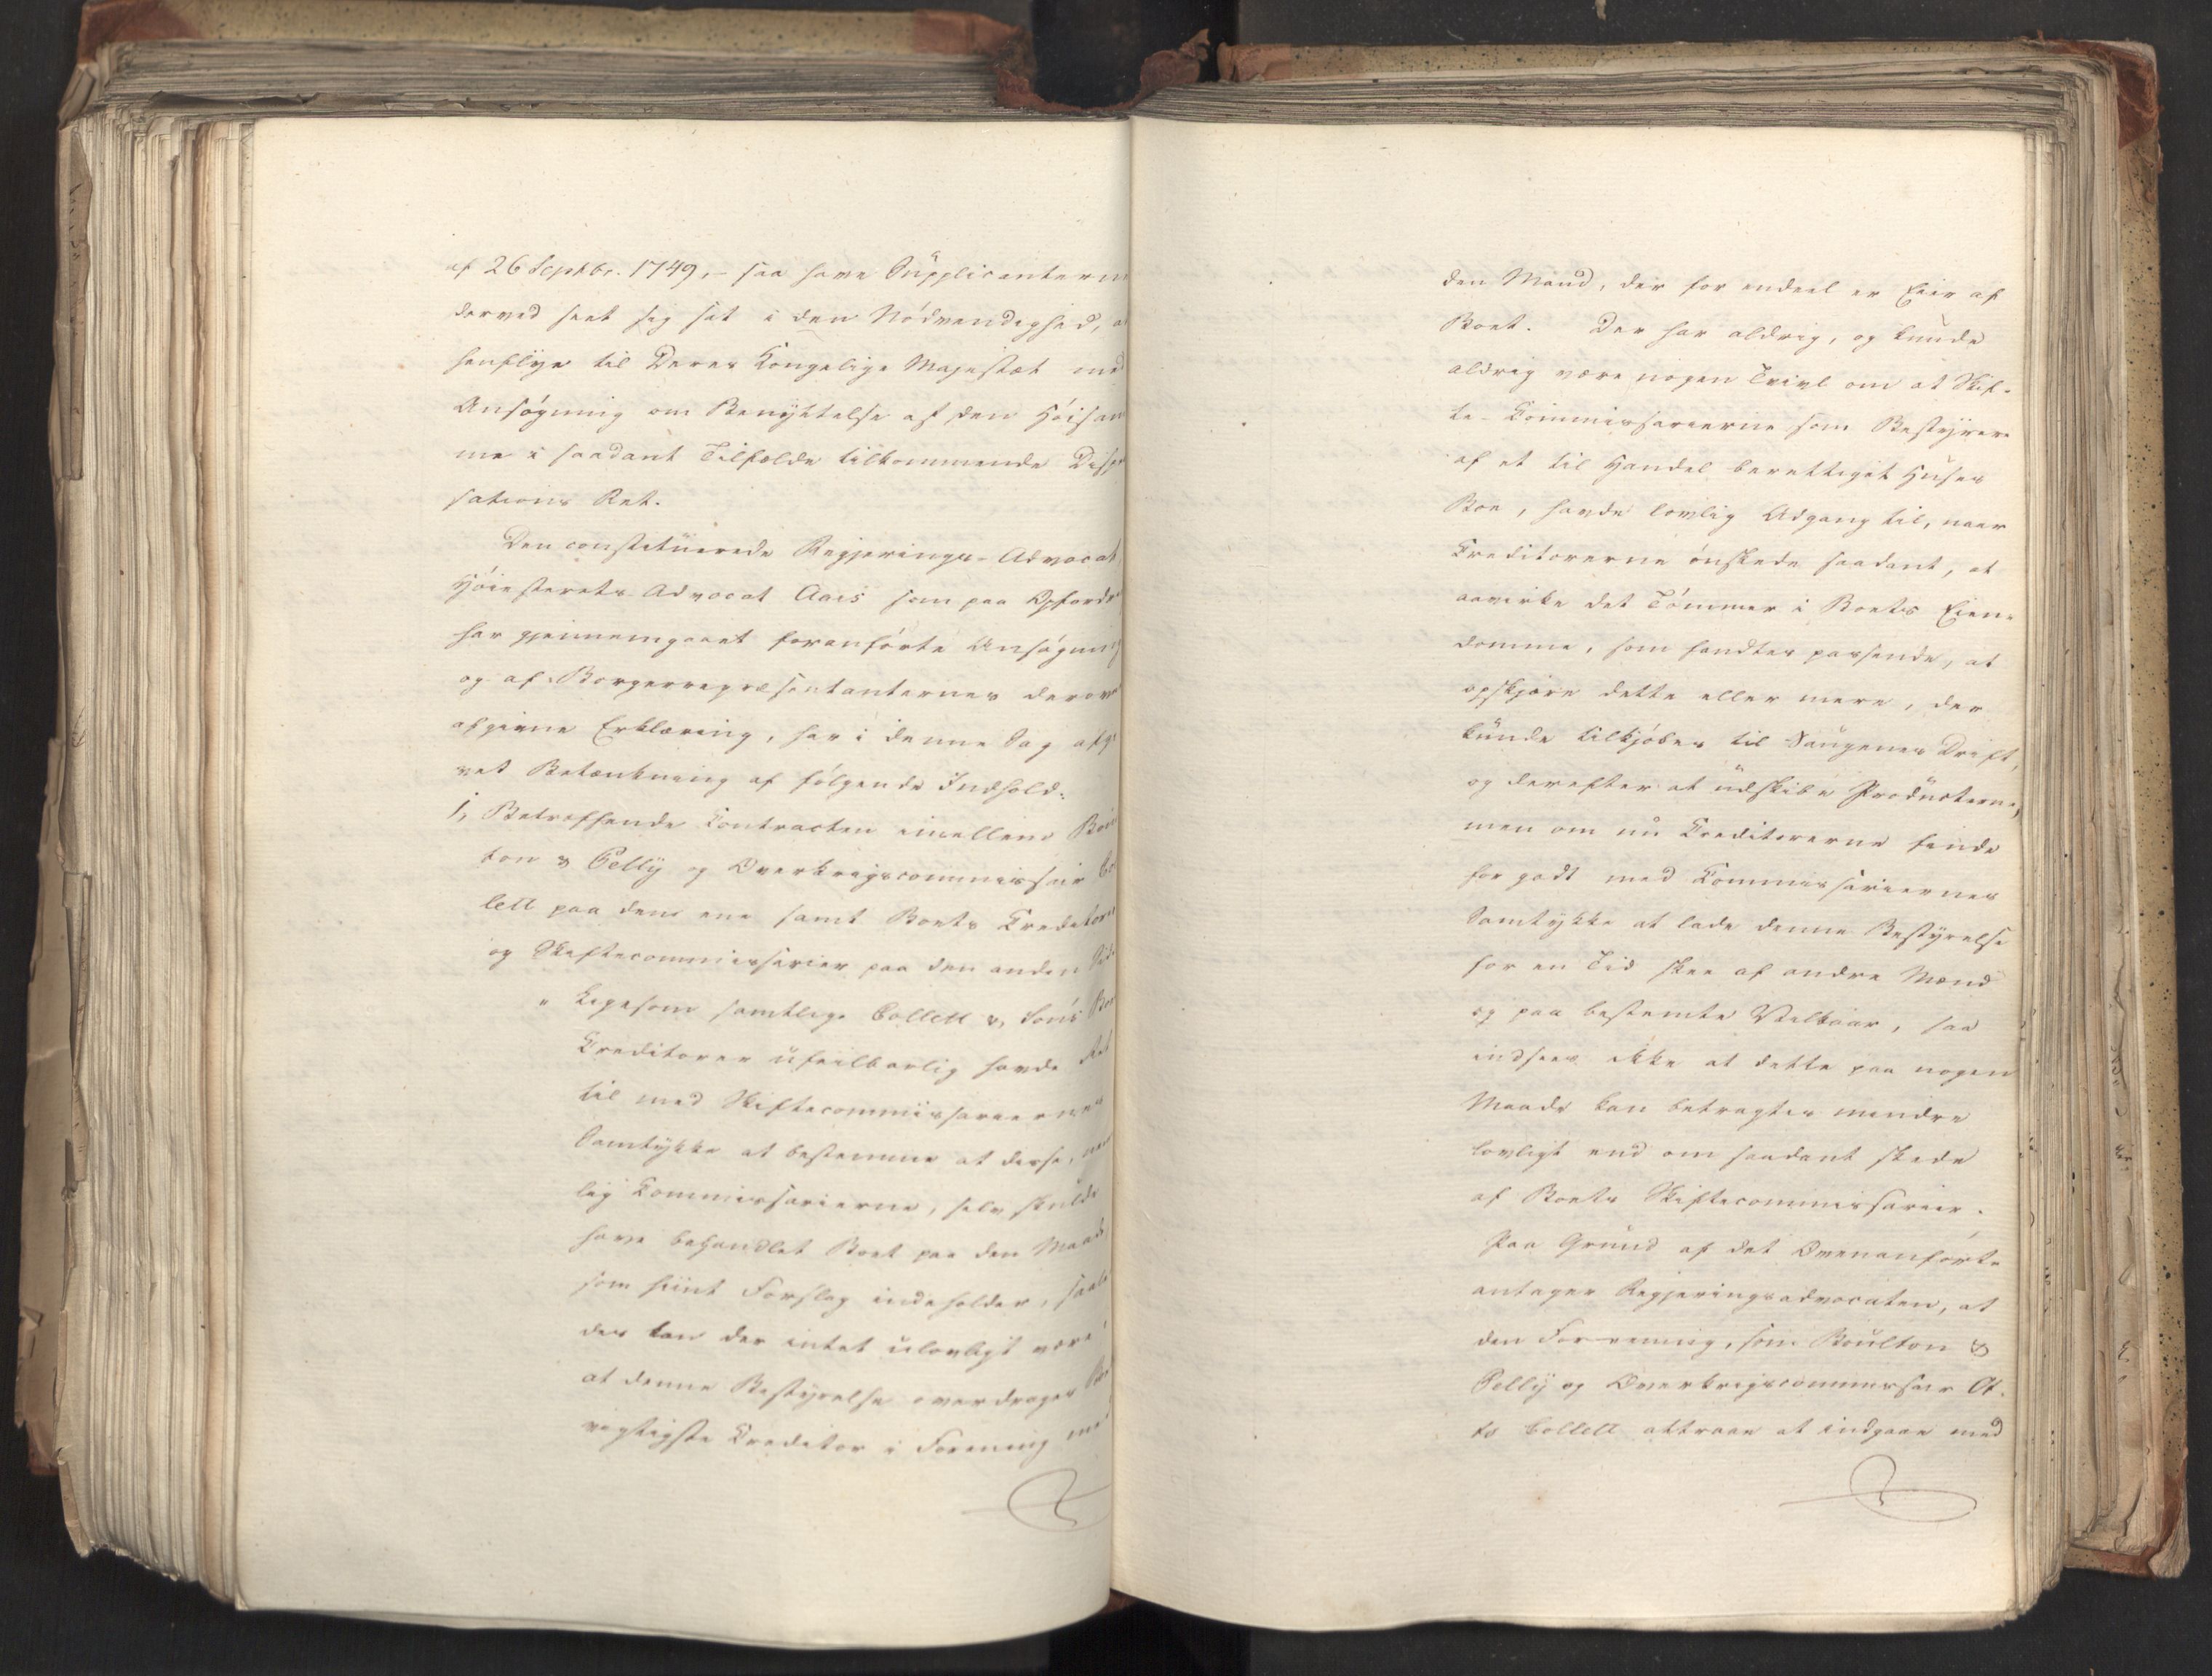 af 26 Septbr. 1749, – saa have Supplicanterne
derved seet sig sat i den Nödvendighed, at
henflye til Deres Kongelige Majestæt med
Ansögning om Benyttelse af den Höisam
me i saadant Tilfælde tilkommende Dispen
sations Ret.
Den constituerede Regjerings-Advocat,
Höiesterets Advocat Aars som paa Opfordr
har gjennemgaaet foranförte Ansögning
og af Borgerrepræsentanternes derover
afgivne Erklæring, har i denne Sag afgi
vet Betænkning af fölgende Indhold:
1, Betræffende Contracten imellem Boul
ton & Pelly og Overkrigscommissair Col
lett paa den ene samt Boets Creditorer
og Skiftecommissarier paa den anden Side
" Ligesom samtlige Collett & Söns Boes
Creditorer ufeilbarlig havde Ret
til med Skiftecommissariernes
Samtykke at bestemme at disse, nem
lig Commissarierne, selv skulde
have behandlet Boet paa den Maade,
som hiint Forslag indeholder, saale
des kan der intet ulovligt være i
at denne Bestyrelse overdrages Boets
vigtigste Creditor i Forening med
den Mand, der for endeel er Eier af
Boet. Der har aldrig, og kunde
aldrig være nogen Tvivl om at Skif-
te-Commissarierne som Bestyrere
af et til Handel berettiget Huses
Boe, havde lovlig Adgang til, naar
Creditorerne önskede saadant, at
aavirke det Tömmer i Boets Eien-
domme, som fandtes passende, at
opskjære dette eller mere, der
kunde tilkjöbes til Saugenes Drift,
og derefter at udskibe Producterne,
men om nu Creditorerne finde
for godt med Commissariernes
Samtykke at lade denne Bestyrelse
for en Tid skee af andre Mænd
og paa bestemte Vilkaar, saa
indsees ikke at dette paa nogen
Maade kan betragtes mindre
lovligt end om saadant skede
af Boets Skiftecommissarier.
Paa Grund af det Ovenanförte
antager Regjeringsadvocaten, at
den Forening, som Boulton &
Pelly og Overkrigscommissair Ot-
to Collett attraae at indgaae med